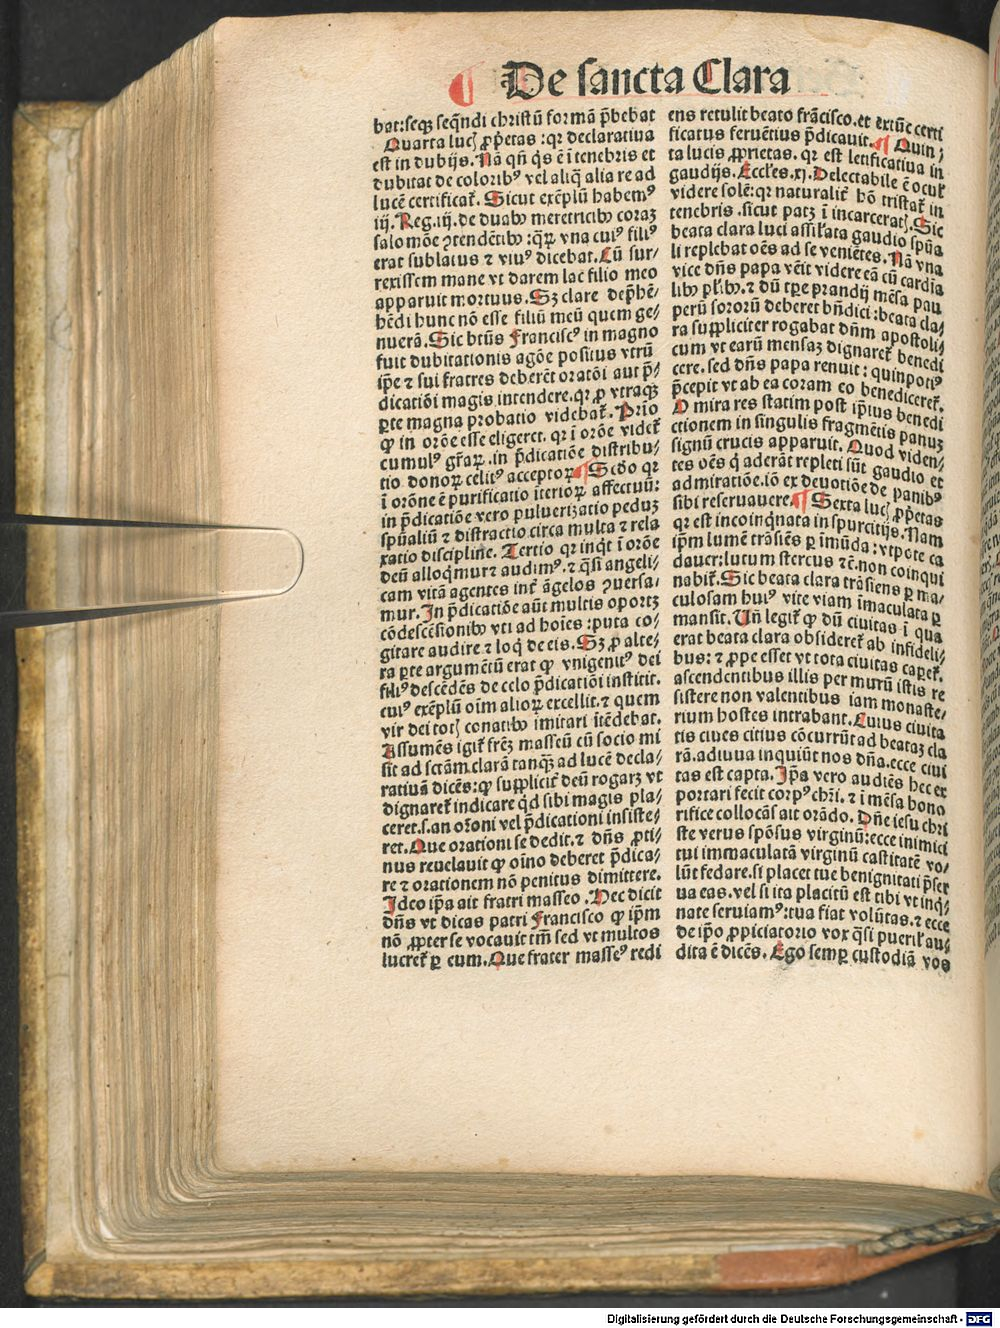 De sancta Clara
bat: seqꝫ seqñdi christū formā p̄bebat
Quarta lucꝭ ꝓp̄etas: qꝛ declaratiua
est in dubijs. Nā qñ q̇s ē ī tenebris et
dubitat de coloribꝰ vel aliq̇ alia re ad
lucē certificat᷑. Sicut exēplū habemꝰ
iij. Reg. iij. de duabꝰ meretricibꝰ coraꝫ
salomōe ꝯtendētibꝰ: qꝝ vna cuiꝰ filiꝰ
erat sublatus ⁊ viuꝰ dicebat. Cū sur⸗
rexissem mane vt darem lac filio meo
apparuit mortuus. Sꝫ clare dep̄hē⸗
hēdi hunc nō esse filiū meū quem ge⸗
nuerā. Sic btūs Franciscꝰ in magno
fuit dubitationis agōe positus vtrū
ip̄e ⁊ sui fratres deberēt oratōi aut p̄⸗
dicatiōi magis intendere. qꝛ ꝓ vtraqꝫ
ꝑte magna probatio videbat᷑. Prīo
ꝙ in orōe esse eligeret. qꝛ ī orōe videt᷑
cumulꝰ gr̄aꝝ. in p̄dicatiōe distribu⸗
tio donoꝝ celitꝰ acceptoꝝ. Scdo qꝛ
ī orōne ē purificatio īterioꝝ affectuū:
in p̄dicatiōe vero pulverizatio peduꝫ
spūaliū ⁊ distractio circa multa ⁊ rela
xatio discipline. Tertio qꝛ inq̇t ī orōe
deū alloq̇mur ⁊ audimꝰ. ⁊ q̇si angeli⸗
cam vitā agentes int᷑ āgelos ꝯuersa⸗
mur. In p̄dicatiōe aūt multis oportꝫ
cōdescēsionibꝰ vti ad hoīes: puta co⸗
gitare audire ⁊ loq̇ de eis. Sꝫ ꝓ alte⸗
ra ꝑte argumētū erat ꝙ vnigenitꝰ dei
filiꝰ descēdēs de celo p̄dicatiōi institit.
cuiꝰ exēplū oīm alioꝝ excellit. ⁊ quem
vir dei totꝭ conatibꝰ imitari ītēdebat.
Assumēs igit᷑ fr̄eꝫ masseū cū socio mi
sit ad sctām clarā tanqꝫ ad lucē decla⸗
ratiuā dicēs: ꝙ supplicit᷑ deū rogarꝫ vt
dignaret᷑ indicare q̇d sibi magis pla⸗
ceret. s. an or̄oni vel p̄dicationi insiste⸗
ret. Que orationi se dedit. ⁊ dn̄s ꝓti⸗
nus reuelauit ꝙ oīno deberet p̄dica⸗
re ⁊ orationem nō penitus dimittere.
Ideo ip̄a ait fratri masseo. Hec dicit
dn̄s vt dicas patri Francisco ꝙ ip̄m
nō ꝓpter se vocauit tm̄ sed vt multos
lucret᷑ ꝑ eum. Que frater masseꝰ redi
ens retulit beato frācisco. et extūc certi
ficatus feruētius p̄dicauit. Quin⸗
ta lucis ꝓprietas. qꝛ est letificatiua in
gaudijs. Eccles. xj. Delectabile ē ocul᷑
videre solē: qꝛ naturalit᷑ hō tristat᷑ in
tenebris. sicut patꝫ ī incarceratꝭ. Sic
beata clara luci assil᷑ata gaudio spūa
li replebat oēs ad se veniētes. Nā vna
vice dn̄s papa vēit videre eā cū cardīa
libꝰ pl᷑ibꝰ. ⁊ dū tꝑe prandij mēsa pau
perū sororū deberet bn̄dici: beata cla⸗
ra suppliciter rogabat dn̄m apostoli⸗
cum vt earū mensaꝫ dignaret᷑ benedi
cere. sed dn̄s papa renuit: quinpotiꝰ
p̄cepit vt ab ea coram eo benediceret᷑.
O mira res statim post ip̄ius benedi
ctionem in singulis fragmētis panuꝫ
signū crucis apparuit. Quod viden⸗
tes oēs q̇ aderāt repleti sūt gaudio et
admiratiōe. iō ex deuotiōe de panibꝰ
sibi reseruauere. Sexta lucꝭ ꝓp̄etas
qꝛ est incoinq̇nata in spurcitijs. Nam
ip̄m lumē trāsiēs ꝑ īmūda: vtpote ca
dauer: lutum stercus ⁊c̄. non coinqui
nabit᷑. Sic beata clara trāsiens ꝑ ma⸗
culosam huiꝰ vite viam īmaculata ꝑ
mansit. Vn̄ legit᷑ ꝙ dū ciuitas ī qua
erat beata clara obsideret᷑ ab infideli⸗
bus: ⁊ ꝓpe esset vt tota ciuitas caperet᷑.
ascendentibus illis per murū istis re
sistere non valentibus iam monaste⸗
rium hostes intrabant. Cuius ciuita
tis ciues citius cōcurrūt ad beataꝫ cla
rā. adiuua inquiūt nos dn̄a. ecce ciui
tas est capta. Ip̄a vero audiēs hec ex
portari fecit corpꝰ chr̄i. ⁊ ī mēsa hono
rifice collocās ait orādo. Dn̄e iesu chri
ste verus spōsus virginū: ecce inimici
tui immaculatā virginū castitatē vo⸗
lūt fedare. si placet tue benignitati p̄ser
ua eas. vel si ita placitū est tibi vt inq̇⸗
nate seruiamꝰ: tua fiat volūtas. ⁊ ecce
de ip̄o ꝓpiciatorio vox q̇si pueril᷑ au⸗
dita ē dicēs. Ego semꝑ custodiā vos
Digitalisierung gefördert durch die Deutsche Forschungsgemeinschaft - DFG